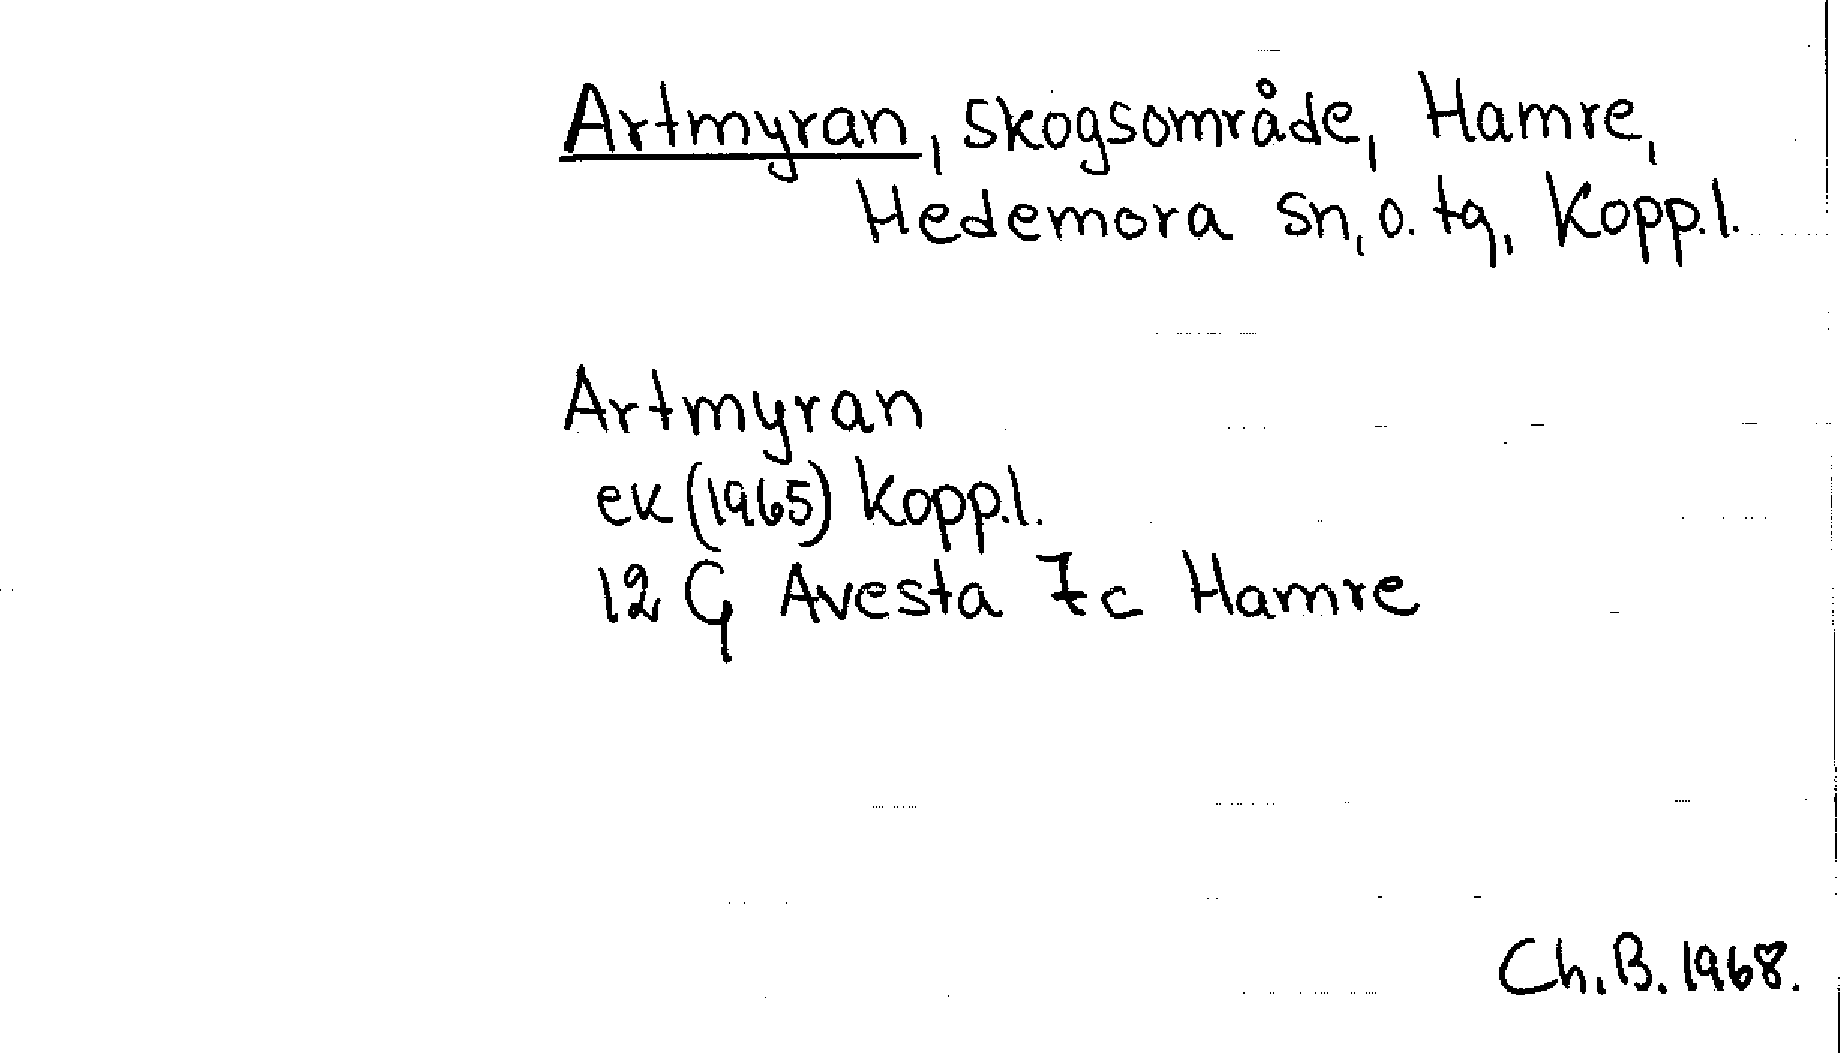 Artmyran, skogsområde, Hamre,
Hedemora sn, o. tg, Kopp.l.
Artmyran
ek (1965) Kopp.l.
12 G Avesta 7c Hamre
Ch.B. 1968.